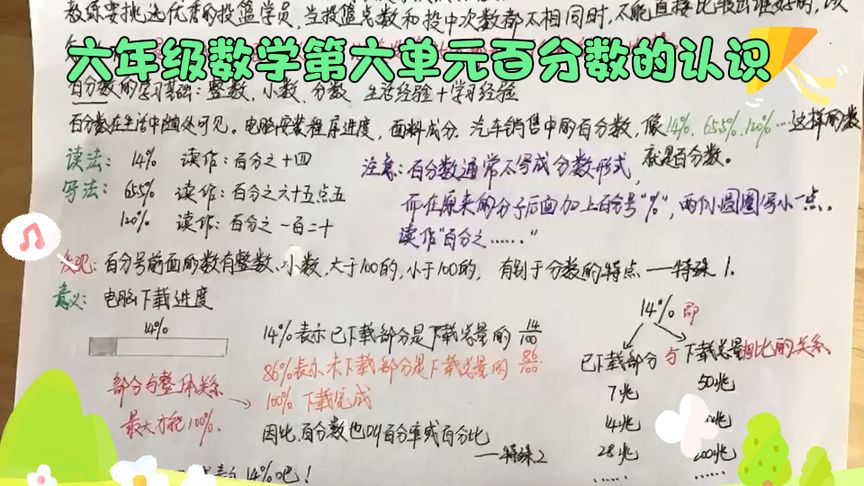 教练要挑选优秀的投篮学员,当投篮总数和投中次数都不相同时,不能直接比较出谁好的,
六年级数学第六单元百分数的认识
百分数的学习基础:整数、小数、分数 生活经验+学习经验
百分数在生活中随处可见。电脑安装程序进度,面料成分,汽车销售中的百分数,像14%、65.5%、120%…这样的数
就是百分数。
读法: 14% 读作:百分之十四
写法: 65.5% 读作:百分之六十五点五
120% 读作:百分之一百二十
注意:百分数通常不写成分数形式,
而在原来的分子后面加上百分号"%",两个小圆圈写小一点。
读作"百分之……"
发现:百分号前面的数有整数、小数,大于100的,小于100的, 有别于分数的特点——特殊1.
意义: 电脑下载进度
14%
14%表示已下载部分是下载总量的14/100
86%表示未下载部分是下载总量的86/100
100% 下载完成
因此,百分数也叫百分率或百分比
——特殊2
部分与整体关系
最大才能100%.
14% 即
已下载部分与下载总量相比的关系
7兆 50兆
14兆
28兆 200兆
…… ……
14%吧!